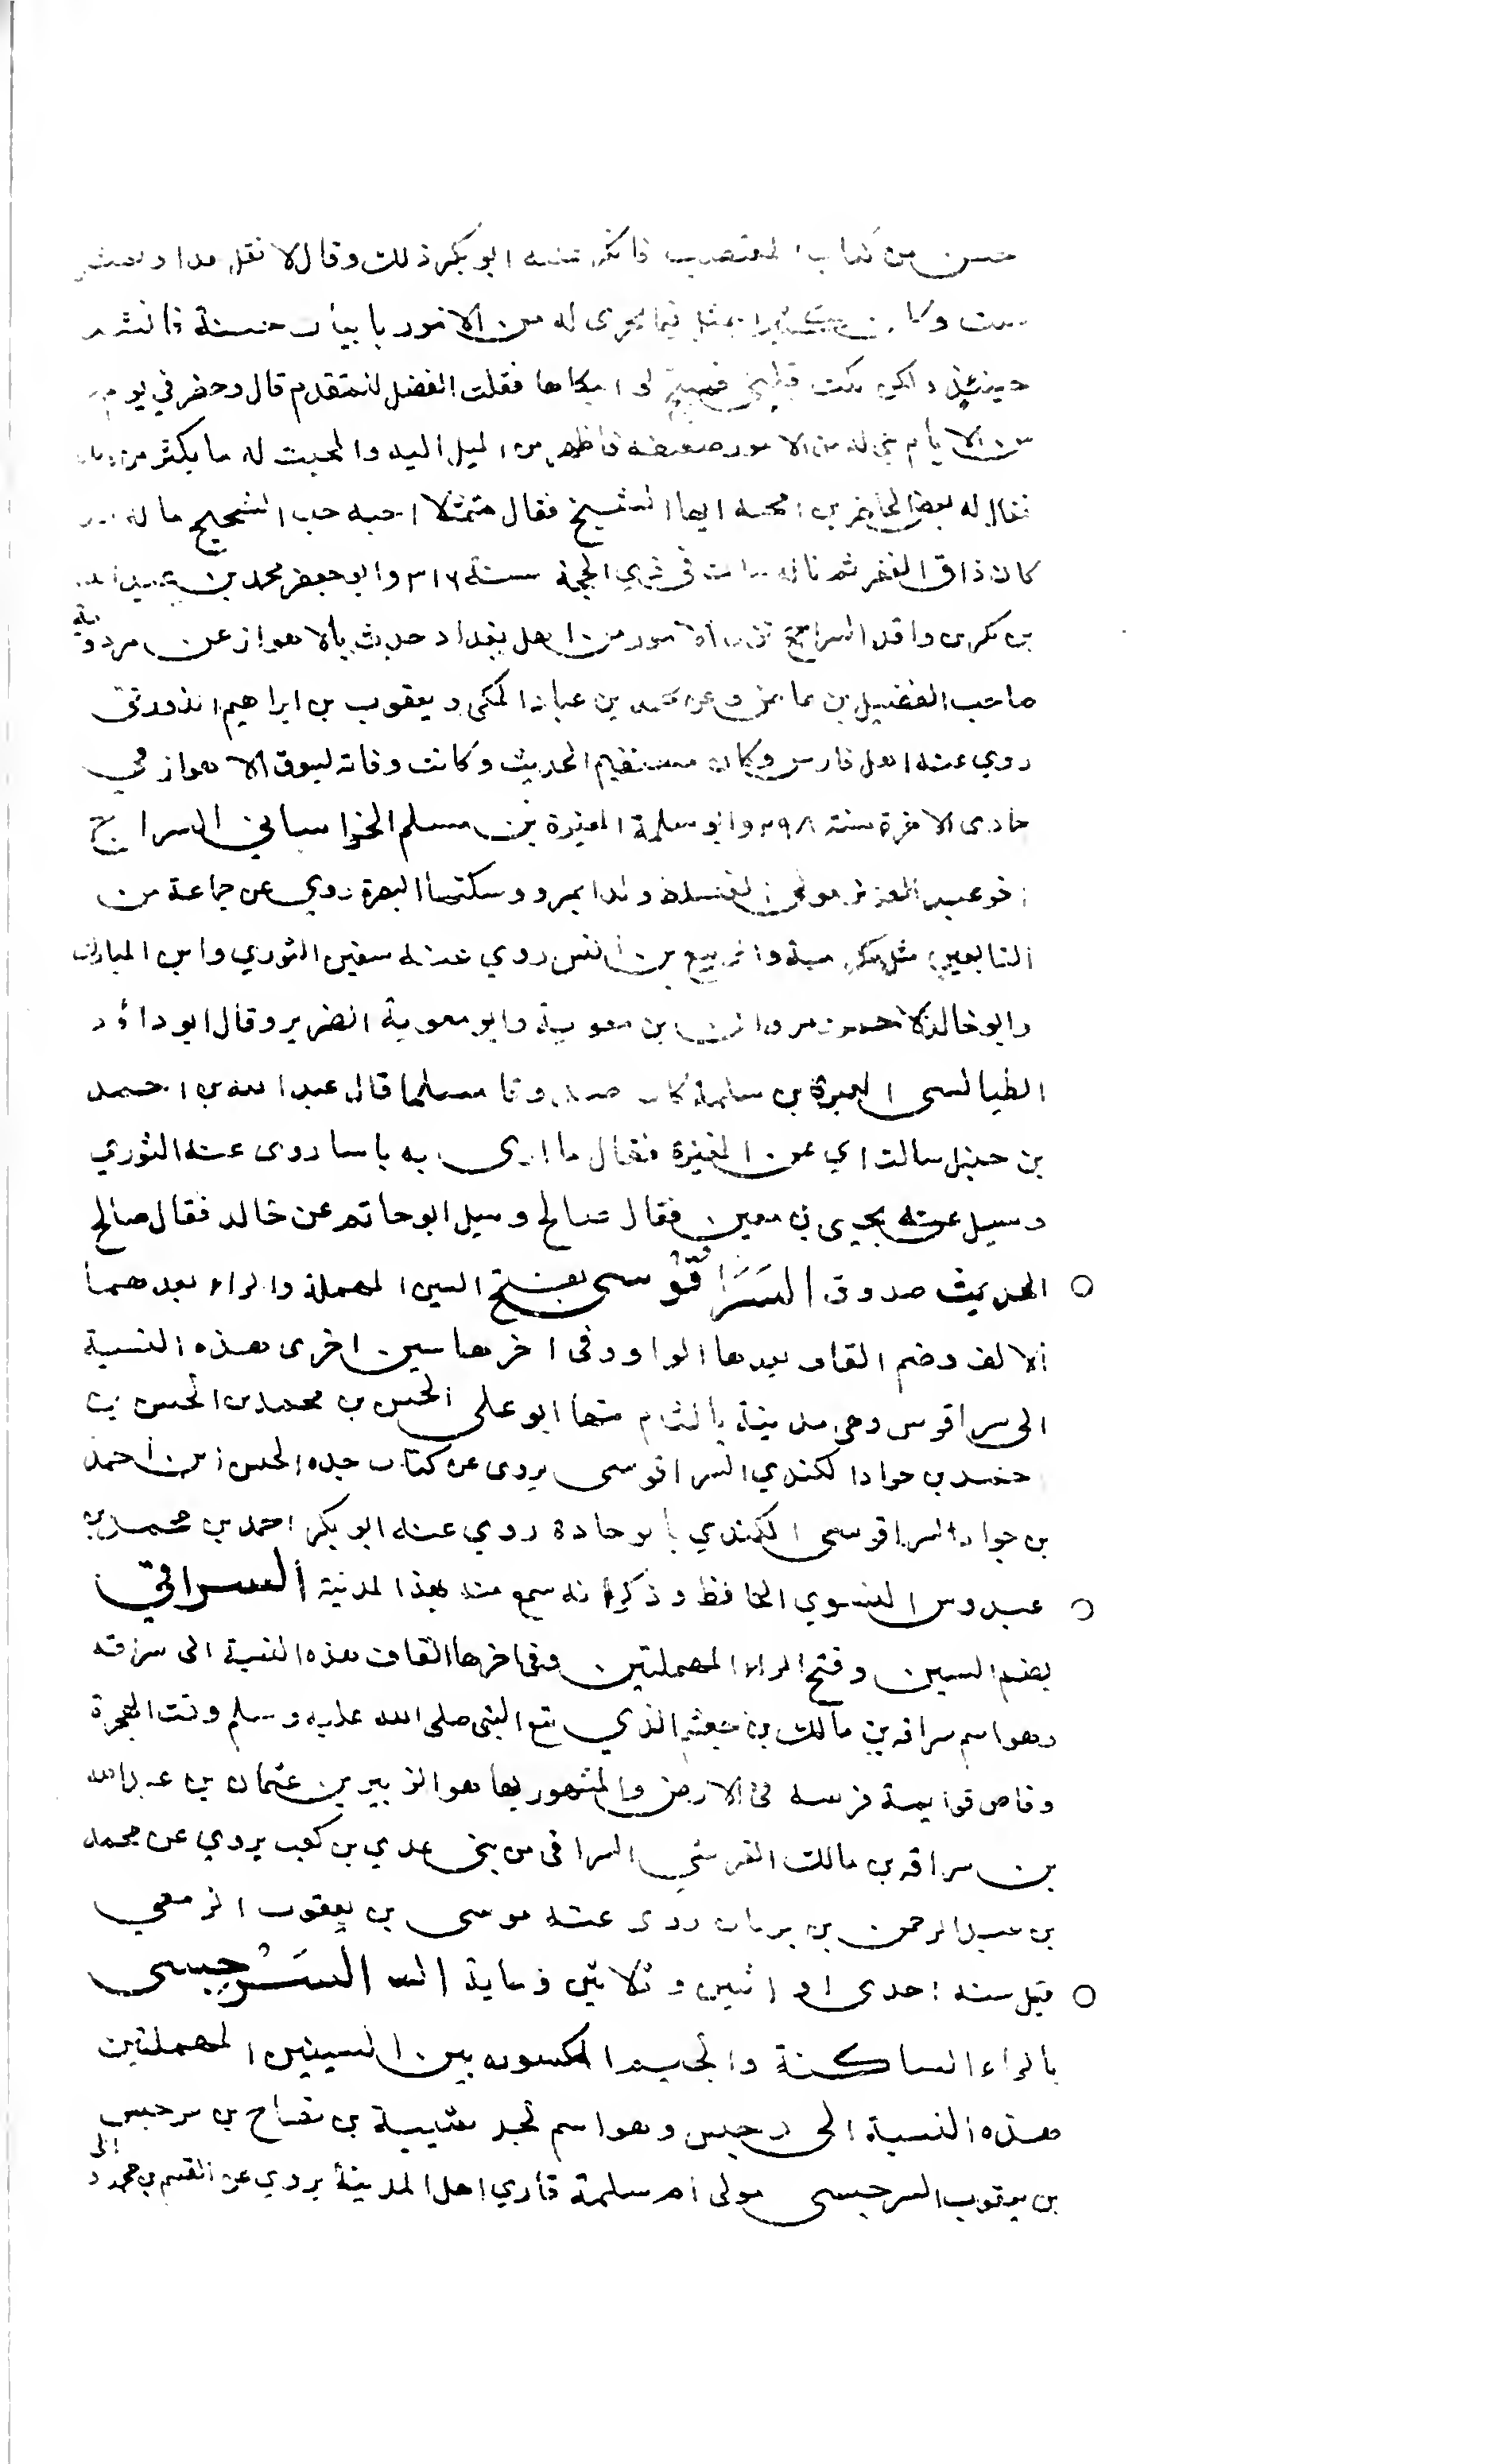 حسن من كتاب المقتضب فانكر عنه ابو بكر ذلك وقال لا تقل هذا
وكان يتمثل فيما يجرى له من الامور بابيات حسنة فانشد
حينئذ ولكن بكت قبلي فهيج لي ابكاها فقلت الفضل للمتقدم قال وحضر في يوم
من الايام بني له من الامور صعبة فاظهر من الميل اليه والمحبت له ما يكثر من
فقال له بعض الحاضرين اتحبه ايها الشيخ فقال متمثلا احبه حب الشحيح ماله
كان ذاق الفقر ثم ناله مات في ذي الحجة سنة ٣١٦ وابو جعفر محمد بن عبيد الله
بن مكرم واقد السراج من اهل بغداد حدث بالاهواز عن مردويه
صاحب الفضيل بن عياض وعن محمد بن عباد المكي ويعقوب بن ابراهيم الدورقي
روي عنه اهل فارس وكان مستقيم الحديث وكانت وفاته بسوق الاهواز في
جمادى الاخرة سنة ٢٩٨ وابو سلمة المغيرة بن مسلم الخراساني السراج
اخو عبد العزيز مولى القسملة ولدا بمرو وسكتا البصرة روي عن جماعة من
التابعين مثل عكرمة والربيع بن انس روي عنه سفين الثوري وابن المبارك
وابو خالد الاحمر ومروان بن معوية وابو معوية الضرير وقال ابو داؤد
الطيالسي المغيرة بن سلمة كان صدوقا مسلما قال عبد الله بن احمد
بن حنبل سالت ابي عن المغيرة فقال ما ارى به باسا روى عنه الثوري
وسيل عنه يحيى بن معين فقال صالح وسيل ابو حاتم عن خالد فقال صالح
الحديث صدوق السَرَاقُوسى بفتح السين المهملة والراء بعدهما
الالف وضم القاف بعدها الواو وفى اخرها سين اخرى هذه النسبة
الى سراقوس وهي مدينة بالشام منها ابو علي الحسن بن محمد بن الحسن بن
احمد بن جواد الكندي السراقوسى يروى عن كتاب جده الحسن بن احمد
بن جواد السراقوسى الكندي بالوجادة روي عنه ابو بكر احمد بن محمد بن
عبدوس النسوي الحافظ وذكر انه سمع منه بهذا المدينة السراقي
بضم السين وفتح الراء المهملتين وفى اخرها القاف هذه النسبة الى سراقه
وهو اسم سراقه بن مالك بن جعشم الذي تبع النبى صلى الله عليه وسلم وقت الهجرة
وغاص قوايمة فرسه في الارض والمشهور بها هو الزبير بن عثمان بن عبد الله
بن سراقه بن مالك القرشي السراقى من بني عدي بن كعب يروي عن محمد
بن عبد الرحمن بن ثوبان روى عنه موسى بن يعقوب الزمعي
قتل سنه احدى او اثنين وثلاثين ومايه السَرْجِسى
بالراء الساكنة والجيم المكسوره بين السينين المهملتين
هذه النسبة الى سرجس وهو اسم لجد شيبة بن نصاح بن سرجس
بن يعقوب السرجسى مولى ام سلمة قاري اهل المدينة يروي عن القسم بن محمد و الى